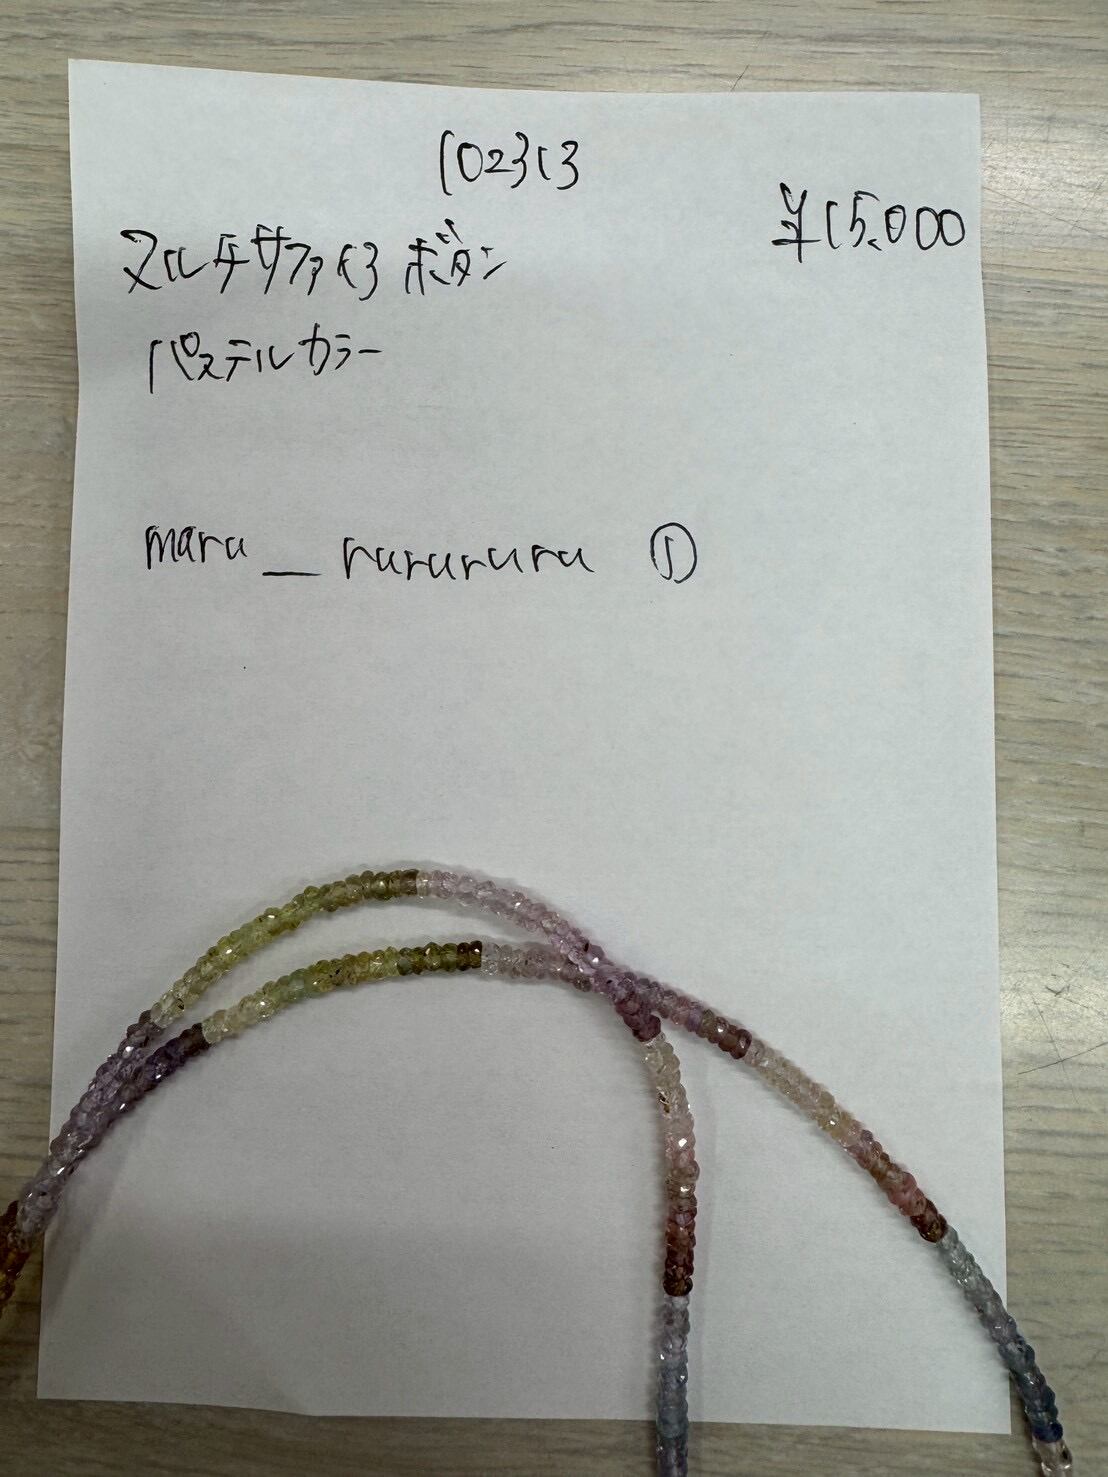 102313
¥15,000
マルチサファイヤ ボタン
パステルカラー
maru_rurururu ①